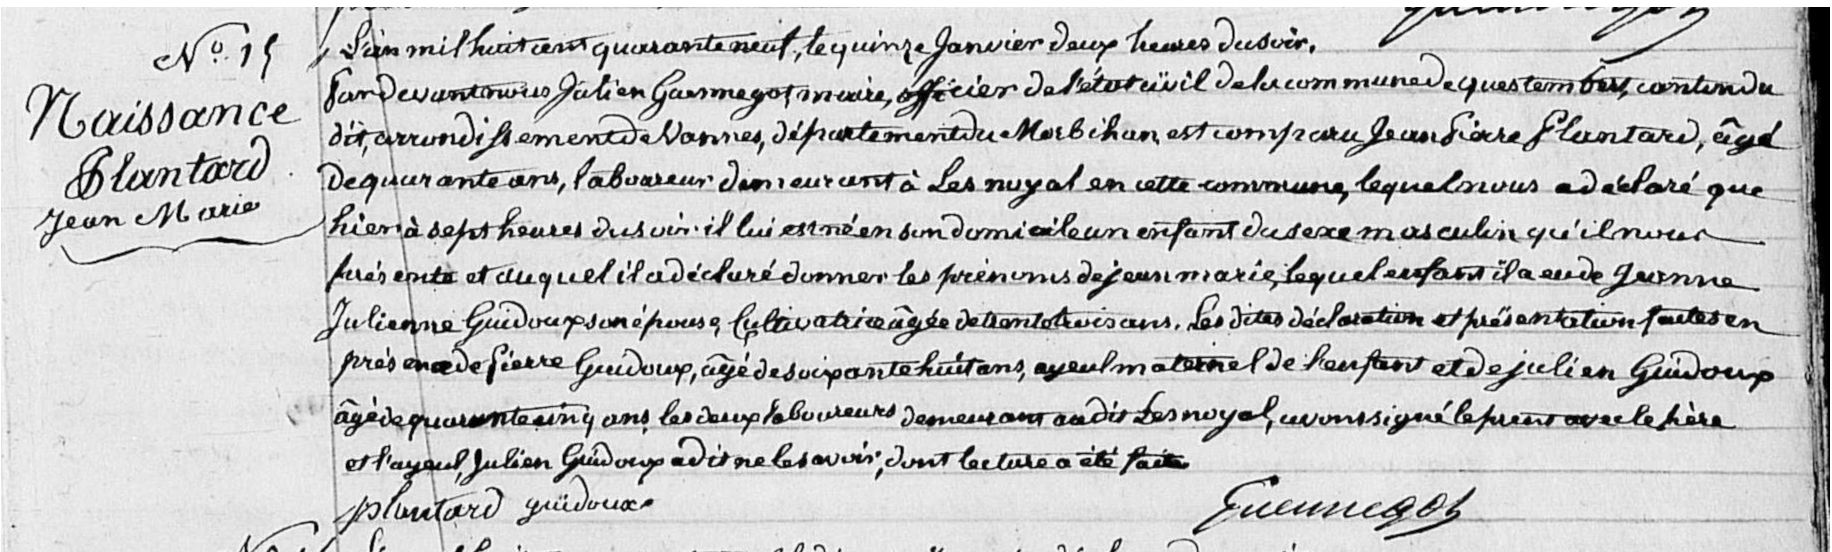 N.º 15
Naissance
Plantard
Jean Marie
L'an mil huit cent quarante neuf, le quinze Janvier deux heures du soir,
Pardevant nous Julien Guennegot, maire, officier de l'état civil de la commune de questembert, canton du
dit, arrondissement de Vannes, département du Morbihan, est comparu Jean Pierre Plantard, âgé
de quarante ans, laboureur demeurant à Les noyal en cette commune, lequel nous a déclaré que
hier à sept heures du soir il lui est né en son domicile un enfant du sexe masculin qu'il nous
présente et auquel il a déclaré donner les prénoms de jean marie, lequel enfant il a eu de Jeanne
Julienne Guidoux son épouse, Cultivatrice âgée de trente trois ans. Les dites déclaration et présentation faites en
présence de Pierre Guidoux, âgé de soixante huit ans, ayeul maternel de l'enfant et de julien Guidoux
âgé de quarante cinq ans, les deux laboureurs demeurant au dit Les noyal, avons signé le prent avec le père
et l'ayeul, Julien Guidoux a dit ne le savoir, dont lecture a été faite
plantard guidoux Guennegot